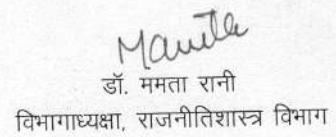 डॉ. ममता रानी
विभागाध्यक्षा, राजनीतिशास्त्र विभाग